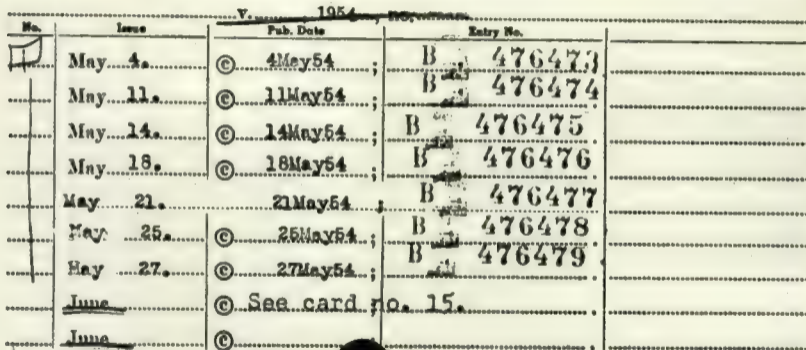 v. 1954, no.
No. Issue Pub. Date Entry No.
May 4. © 4May54 ; B 476473.
May 11. © 11May54 ; B 476474
May 14. © 14May54 ; B 476475
May 18. © 18May54 ; B 476476.
May 21. 21May54 ; B 476477
May 25. © 25May54 ; B 476478
May 27. © 27May54 ; B 476479.
June © See card no. 15.
June ©